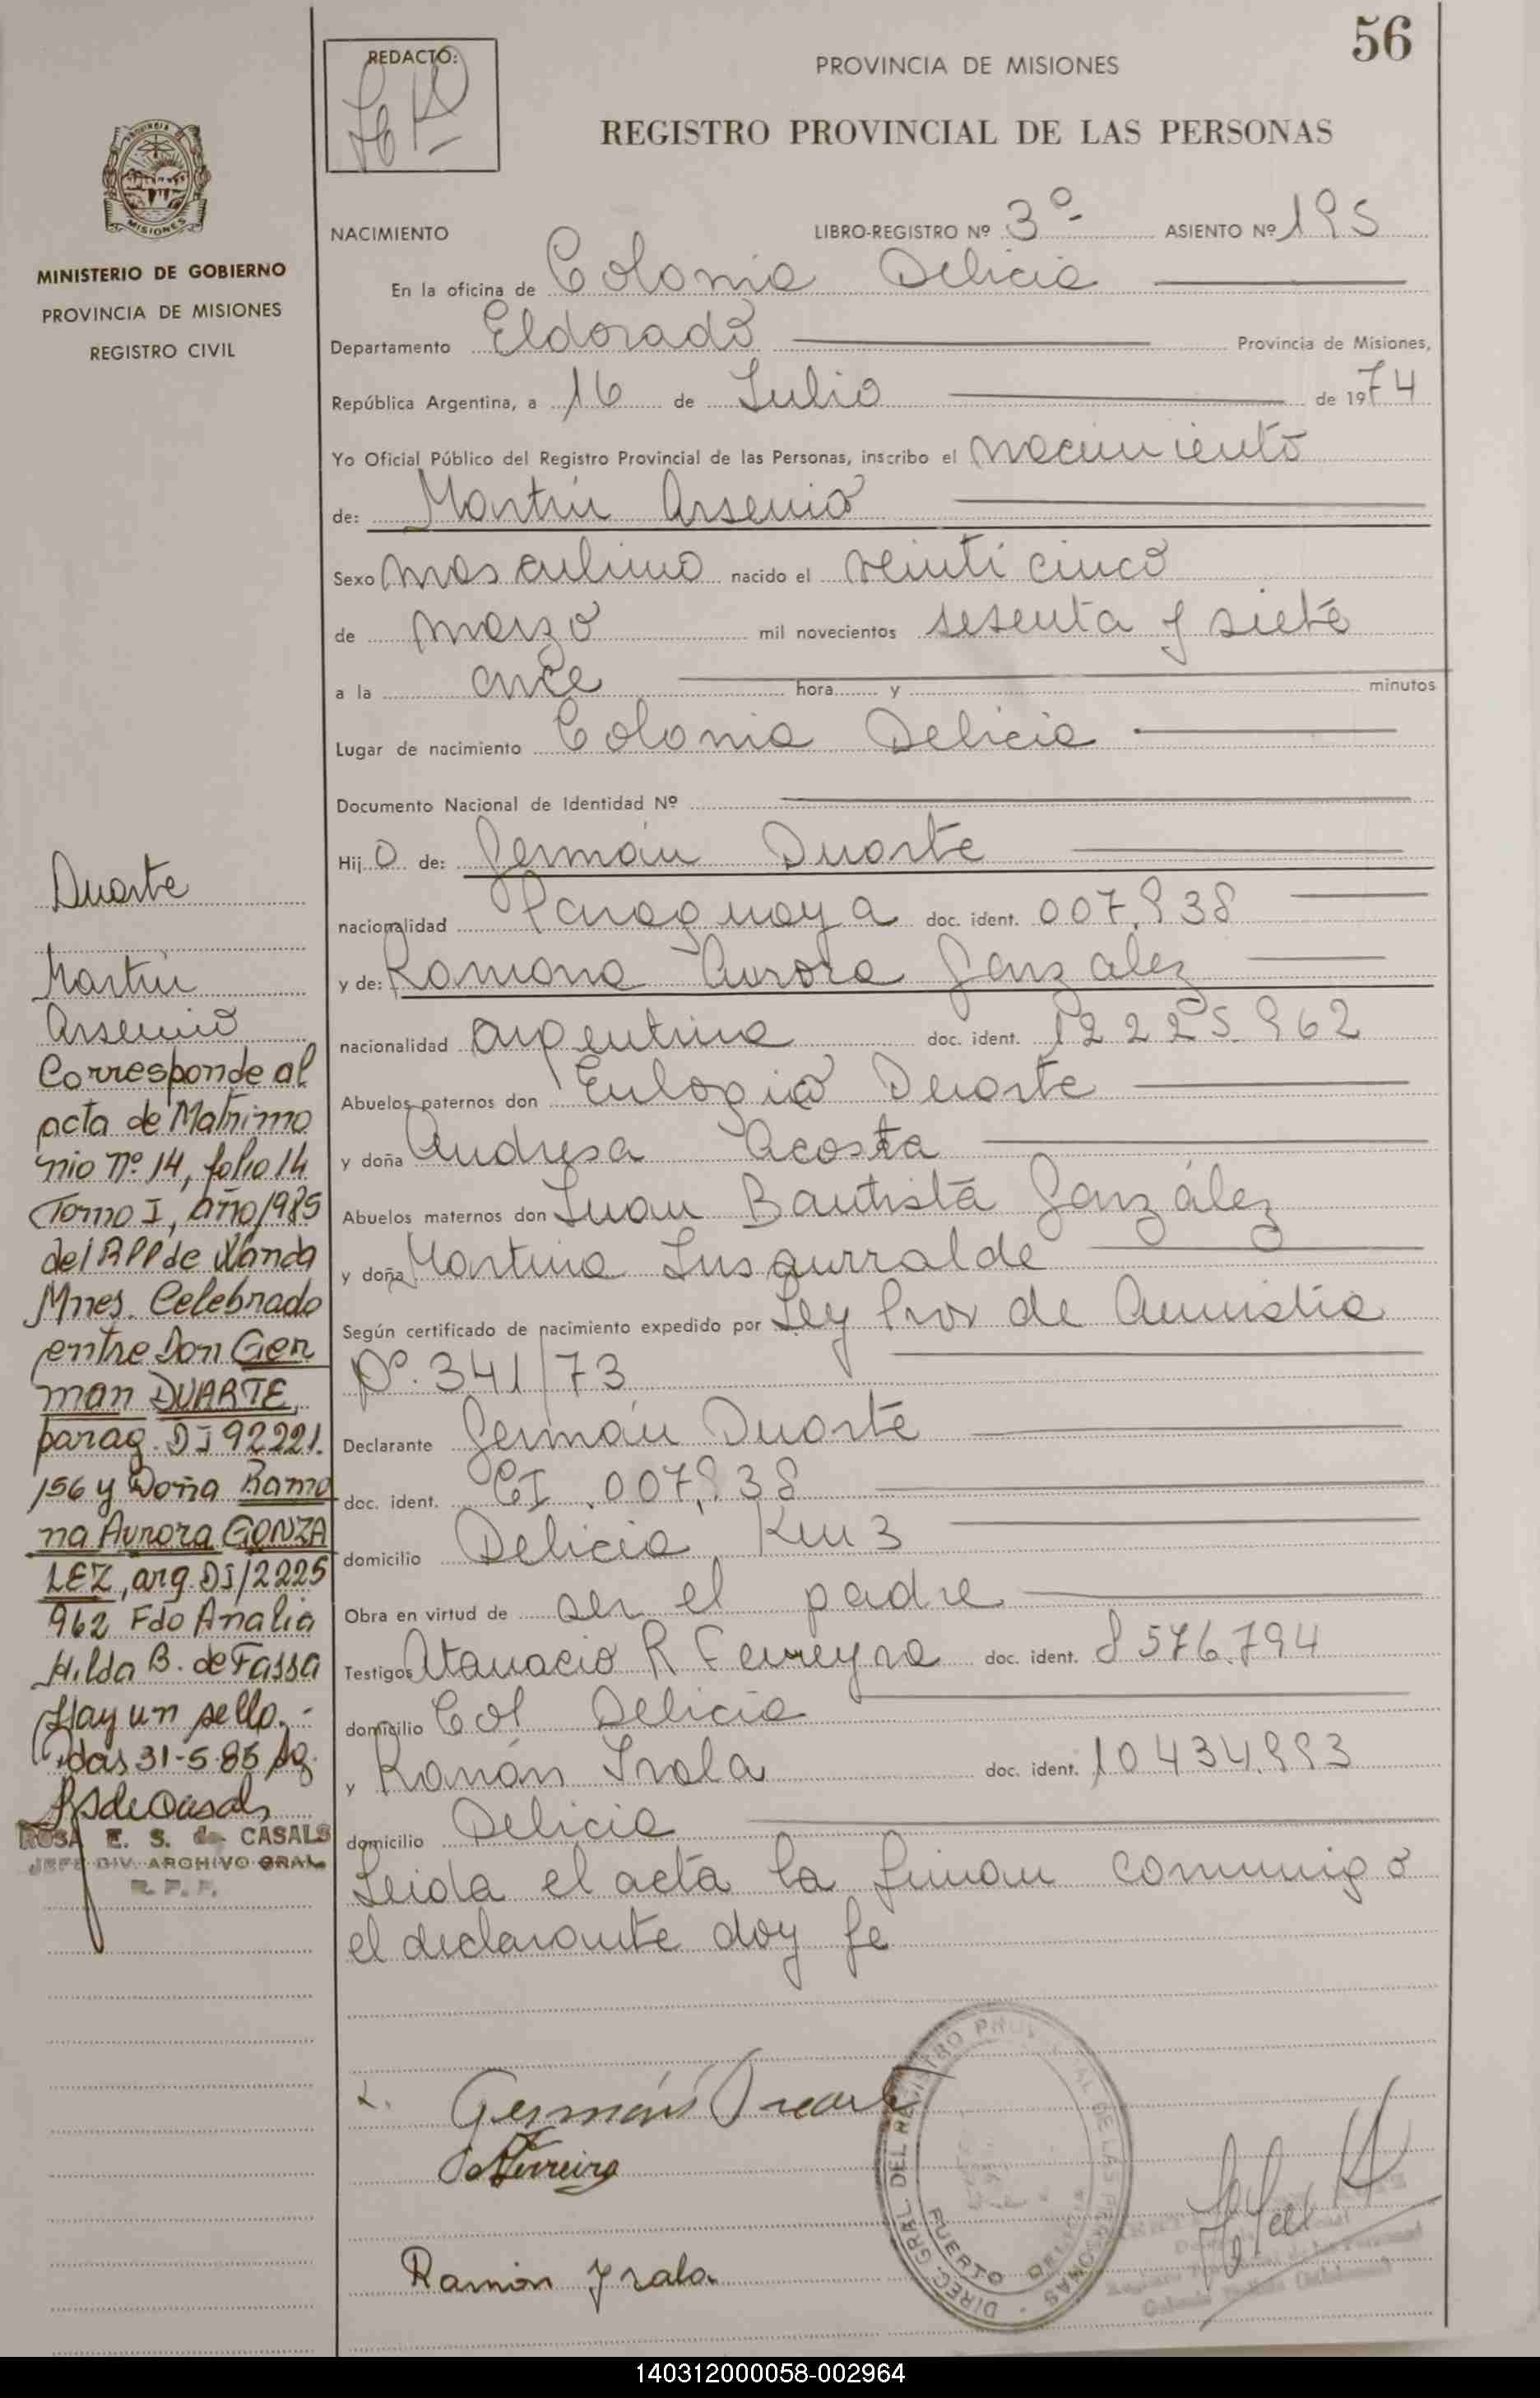 56
REDACTÓ:
PROVINCIA DE MISIONES
REGISTRO PROVINCIAL DE LAS PERSONAS
MISIONES
MINISTERIO DE GOBIERNO
PROVINCIA DE MISIONES
REGISTRO CIVIL
NACIMIENTO LIBRO-REGISTRO Nº 3º ASIENTO Nº 195
En la oficina de Colonia Delicia
Departamento Eldorado Provincia de Misiones,
República Argentina, a 16 de Julio de 1974
Yo Oficial Público del Registro Provincial de las Personas, inscribo el nacimiento
de: Martín Arsenio
Sexo masculino nacido el veinti cinco
de marzo mil novecientos sesenta y siete
a la once hora y minutos
Lugar de nacimiento Colonia Delicia
Documento Nacional de Identidad Nº
Hijo de: Germán Duarte
nacionalidad Paraguaya doc. ident. 007.938
y de: Ramona Aurora Gonzalez
nacionalidad argentina doc. ident. 12225.962
Abuelos paternos don Eulogio Duarte
y doña Andresa Acosta
Abuelos maternos don Juan Bautista González
y doña Martina Insaurralde
Según certificado de nacimiento expedido por Ley Prov de Amnistia
Nº. 341/73
Declarante Germán Duarte
doc. ident. CI .007.938
domicilio Delicia Km 3
Obra en virtud de ser el padre
Testigos Atanacio R Ferreyra doc. ident. 8576.794
domicilio Col Delicia
y Ramón Irala doc. ident. 10434.993
domicilio Delicia
Leida el acta la firman conmigo
el declarante doy fe
Duarte
Martín
Arsenio
Corresponde al
acta de Matrimo
nio nº 14, folio 14
Tomo I, año 1985
del RPP de Wanda
Mnes. Celebrado
entre Don Ger
man DUARTE,
parag. DI 92221.
156 y Doña Ramo
na Aurora GONZA
LEZ, arg. DI 12225
962 Fdo Analia
Hilda B. de Fassa
Hay un sello.-
Pdas 31-5-85
ROSA E. S. de CASALS
JEFE DIV. ARCHIVO GRAL
R. P. P.
Germán Duarte
Ferreira
Ramón Yrala
DIREC. GRAL DEL REGISTRO PROVINCIAL DE LAS PERSONAS
PUERTO DELICIA
140312000058-002964